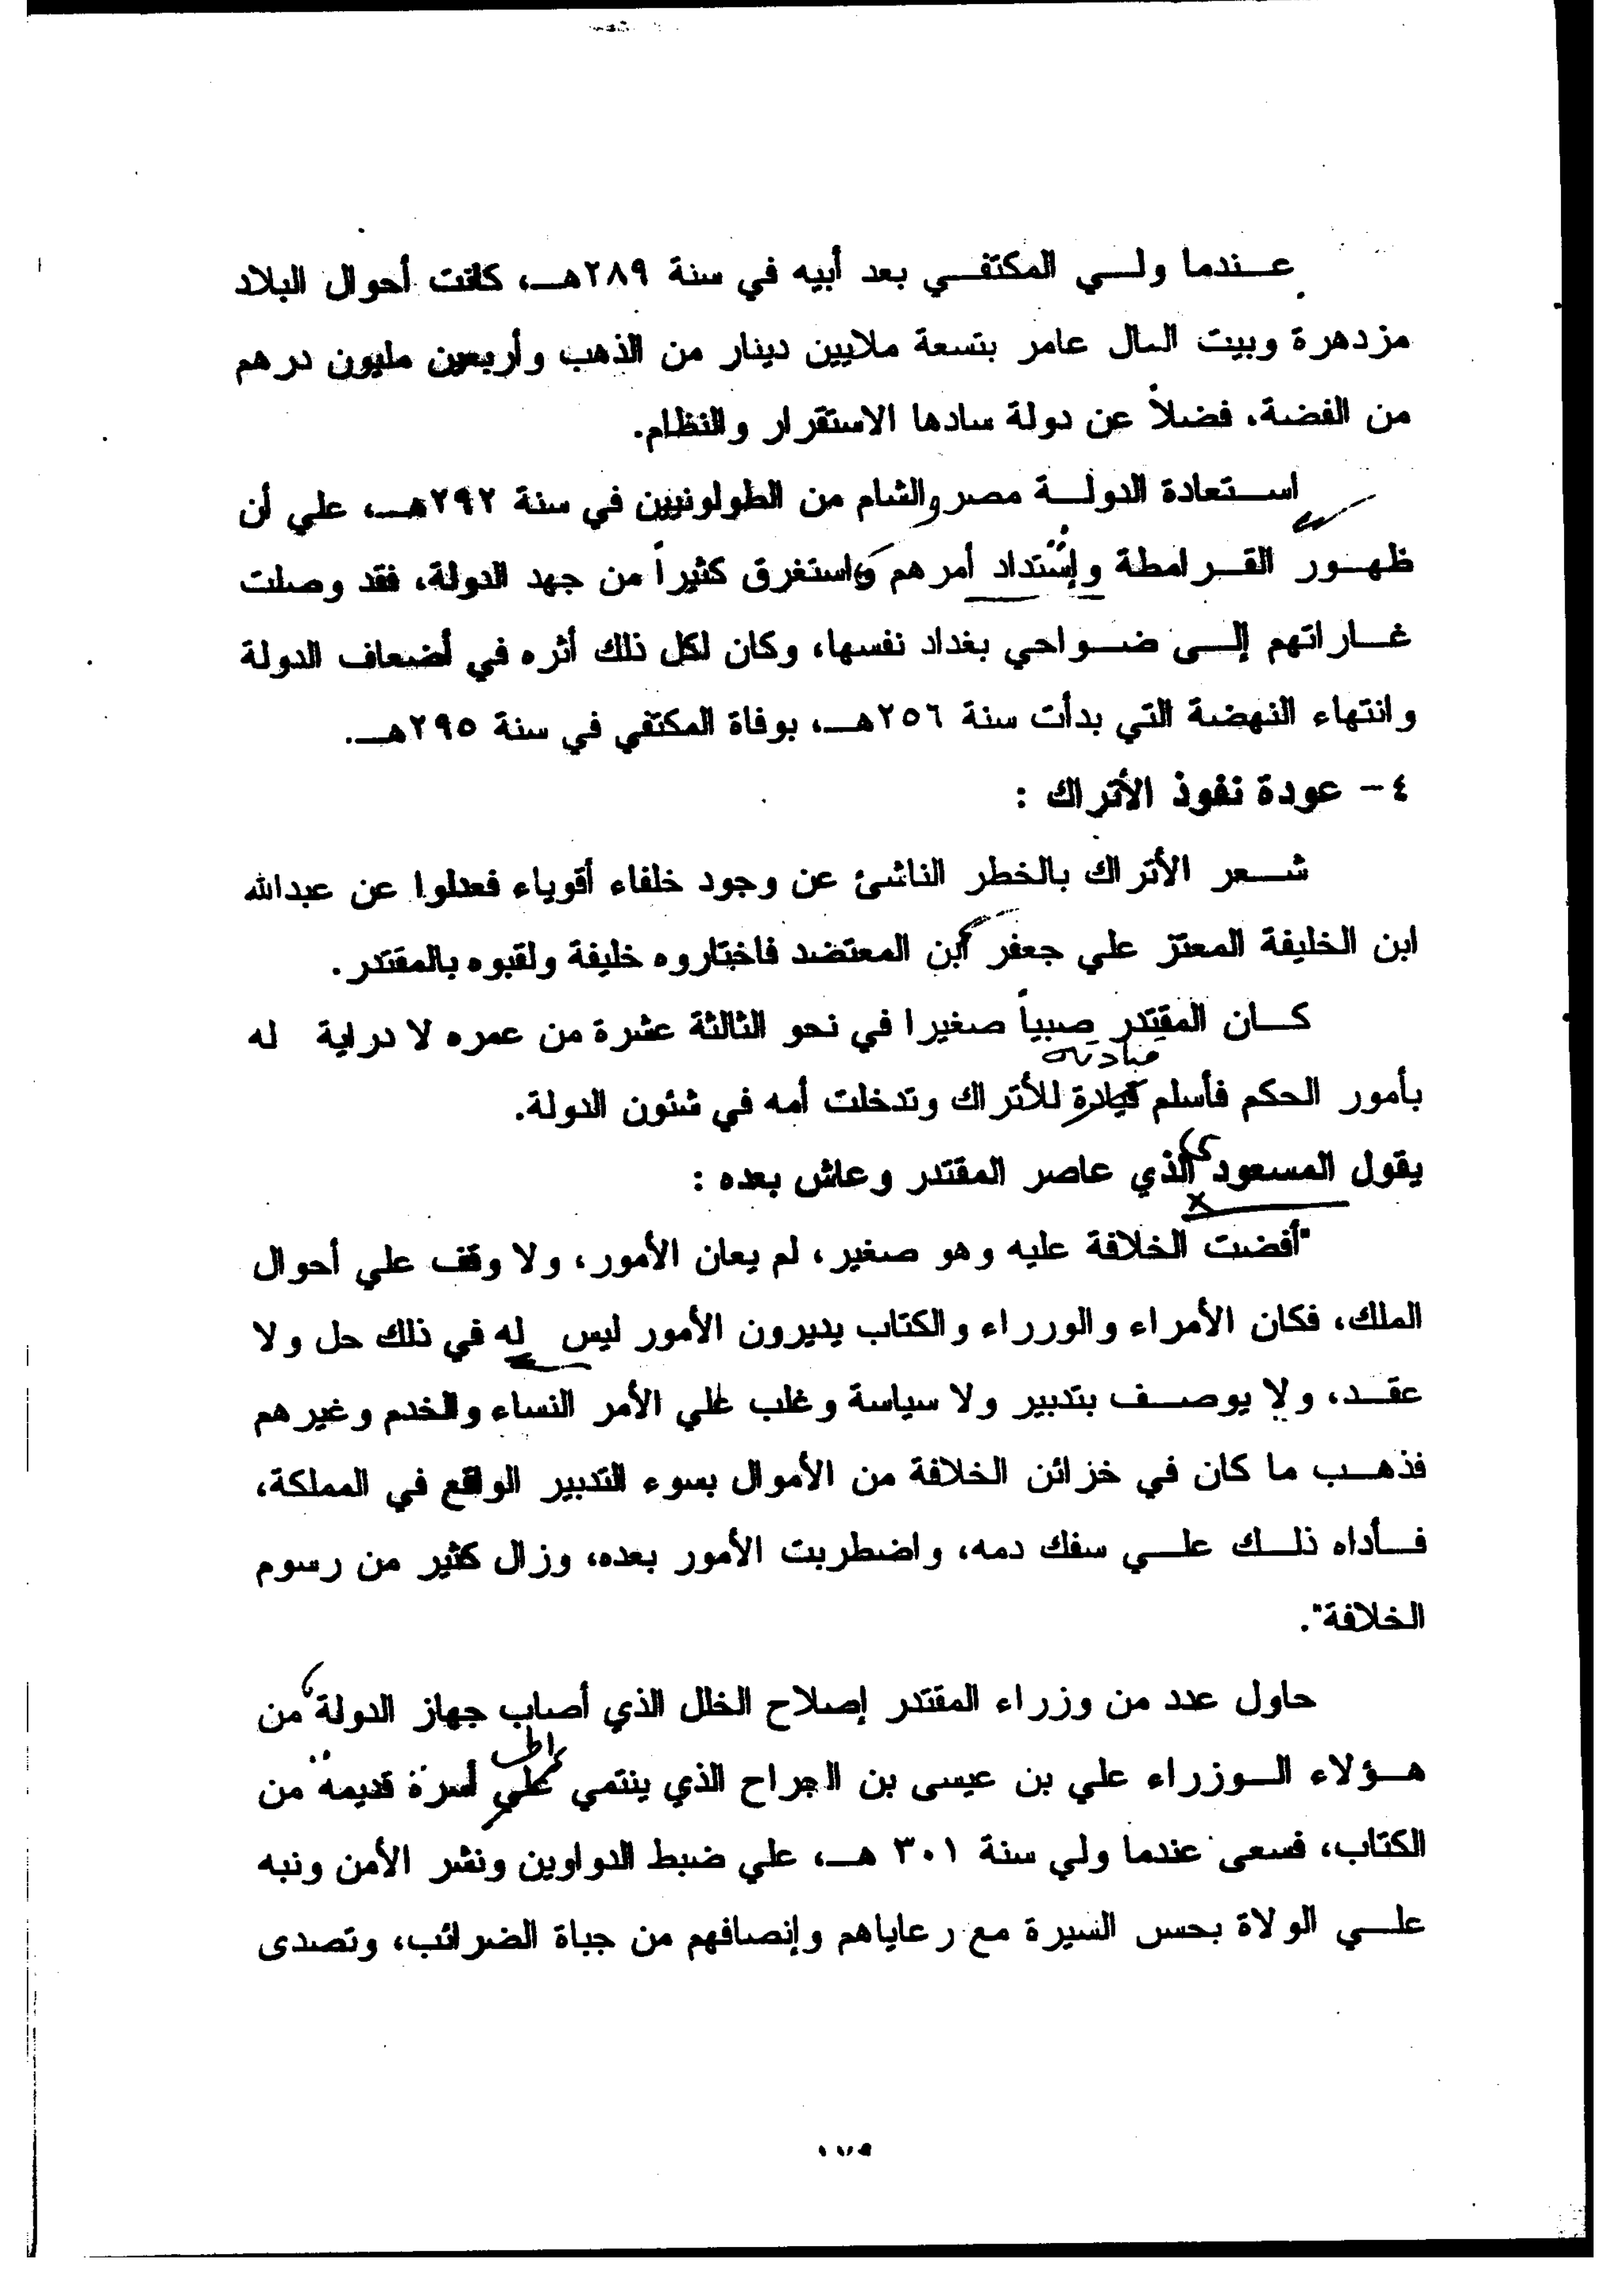 عندما ولي المكتفي بعد أبيه في سنة ٢٨٩هـ، كانت أحوال البلاد
مزدهرة وبيت المال عامر بتسعة ملايين دينار من الذهب وأربعين مليون درهم
من الفضة، فضلاً عن دولة سادها الاستقرار والنظام.
استعادة الدولة مصر والشام من الطولونيين في سنة ٢٩٢هـ، علي أن
ظهور القرامطة وإشتداد أمرهم واستغرق كثيراً من جهد الدولة، فقد وصلت
غاراتهم إلى ضواحي بغداد نفسها، وكان لكل ذلك أثره في أضعاف الدولة
وانتهاء النهضة التي بدأت سنة ٢٥٦هـ، بوفاة المكتفي في سنة ٢٩٥هـ.
٤- عودة نفوذ الأتراك :
شعر الأتراك بالخطر الناشئ عن وجود خلفاء أقوياء فعدلوا عن عبدالله
ابن الخليفة المعتز علي جعفر ابن المعتضد فاختاروه خليفة ولقبوه بالمقتدر.
كان المقتدر صبياً صغيرا في نحو الثالثة عشرة من عمره لا دراية له
قيادته
بأمور الحكم فأسلم قيادة للأتراك وتدخلت أمه في شئون الدولة.
يقول المسعود الذي عاصر المقتدر وعاش بعده :
"أفضت الخلافة عليه وهو صغير، لم يعان الأمور، ولا وقف علي أحوال
الملك، فكان الأمراء والورراء والكتاب يديرون الأمور ليس له في ذلك حل ولا
عقد، ولا يوصف بتدبير ولا سياسة وغلب علي الأمر النساء والخدم وغيرهم
فذهب ما كان في خزائن الخلافة من الأموال بسوء التدبير الواقع في المملكة،
فأداه ذلك علي سفك دمه، واضطربت الأمور بعده، وزال كثير من رسوم
الخلافة".
حاول عدد من وزراء المقتدر إصلاح الخلل الذي أصاب جهاز الدولة، من
إلى
هؤلاء الوزراء علي بن عيسى بن الجراح الذي ينتمي علي أسرة قديمة من
الكتاب، فسعى عندما ولي سنة ٣٠١ هـ، علي ضبط الدواوين ونشر الأمن ونبه
علي الولاة بحس السيرة مع رعاياهم وإنصافهم من جباة الضرائب، وتصدى